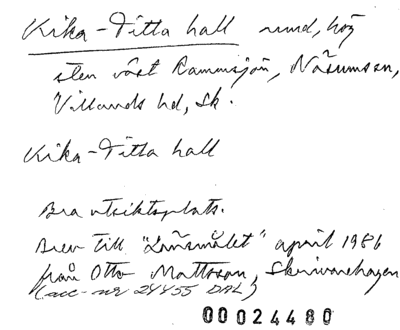 Kika-Titta hall rund, hög
sten väst Rammsjön, Näsumssn,
Villands hd, Sk.
Kika-Titta hall
Bra utsiktsplats.
Brev till "Länsmålet" april 1986
från Otto Mattsson, Skrivarehagen
(acc-nr 24455 DAL)
00024480